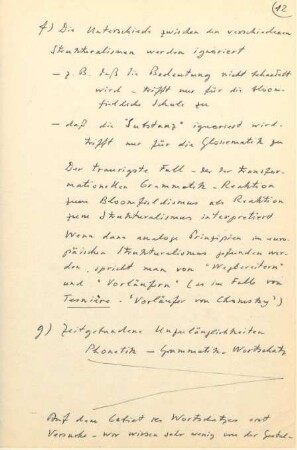 12
f) Die Unterschiede zwischen den verschiedenen
Strukturalismen werden ignoriert
– z. B. daß die Bedeutung nicht behandelt
wird – trifft nur für die Bloom-
fieldsche Schule zu
– daß die "Substanz" ignoriert wird –
trifft nur für die Glossematik zu
Der traurigste Fall – der der transfor-
mationellen Grammatik – Reaktion
zum Bloomfieldismus als Reaktion
zum Strukturalismus interpretiert
Wenn dann analoge Prinzipien im euro-
päischen Strukturalismus gefunden wer-
den, spricht man von "Wegbereitern"
und "Vorläufern" (so im Falle von
Tesnière – 'Vorläufer von Chomsky')
g) Zeitgebundene Unzulänglichkeiten
Phonetik – Grammatik Wortschatz
Auf dem Gebiet des Wortschatzes erst
Versuche – wir wissen sehr wenig von der Gestal-